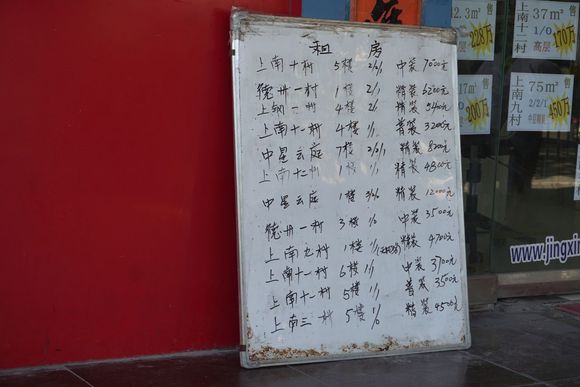 租 房
上南十村 5楼 2/1/1 中装 7000元
德州一村 1楼 2/1 精装 6200元
上钢一村 4楼 2/1 精装 5400元
上南十一村 4楼 1/1 普装 3200元
中星云庭 7楼 2/2/1 精装 8200元
上南十二村 1楼 1/1 精装 4800元
中星云庭 1楼 3/2/2 精装 12000元
德州一村 3楼 1/0 中装 3500元
上南九村 1楼 1/1 精装 4700元
上南十一村 6楼 1/1 中装 3700元
上南十一村 5楼 1/1 普装 3500元
上南三村 5楼 1/0 精装 4500元
2.3m² 售
228万
上南十二村 37m² 售
1/0
高层 170万
17m² 售
200万
上南九村 75m² 售
2/2/1
450万
www.jingxin